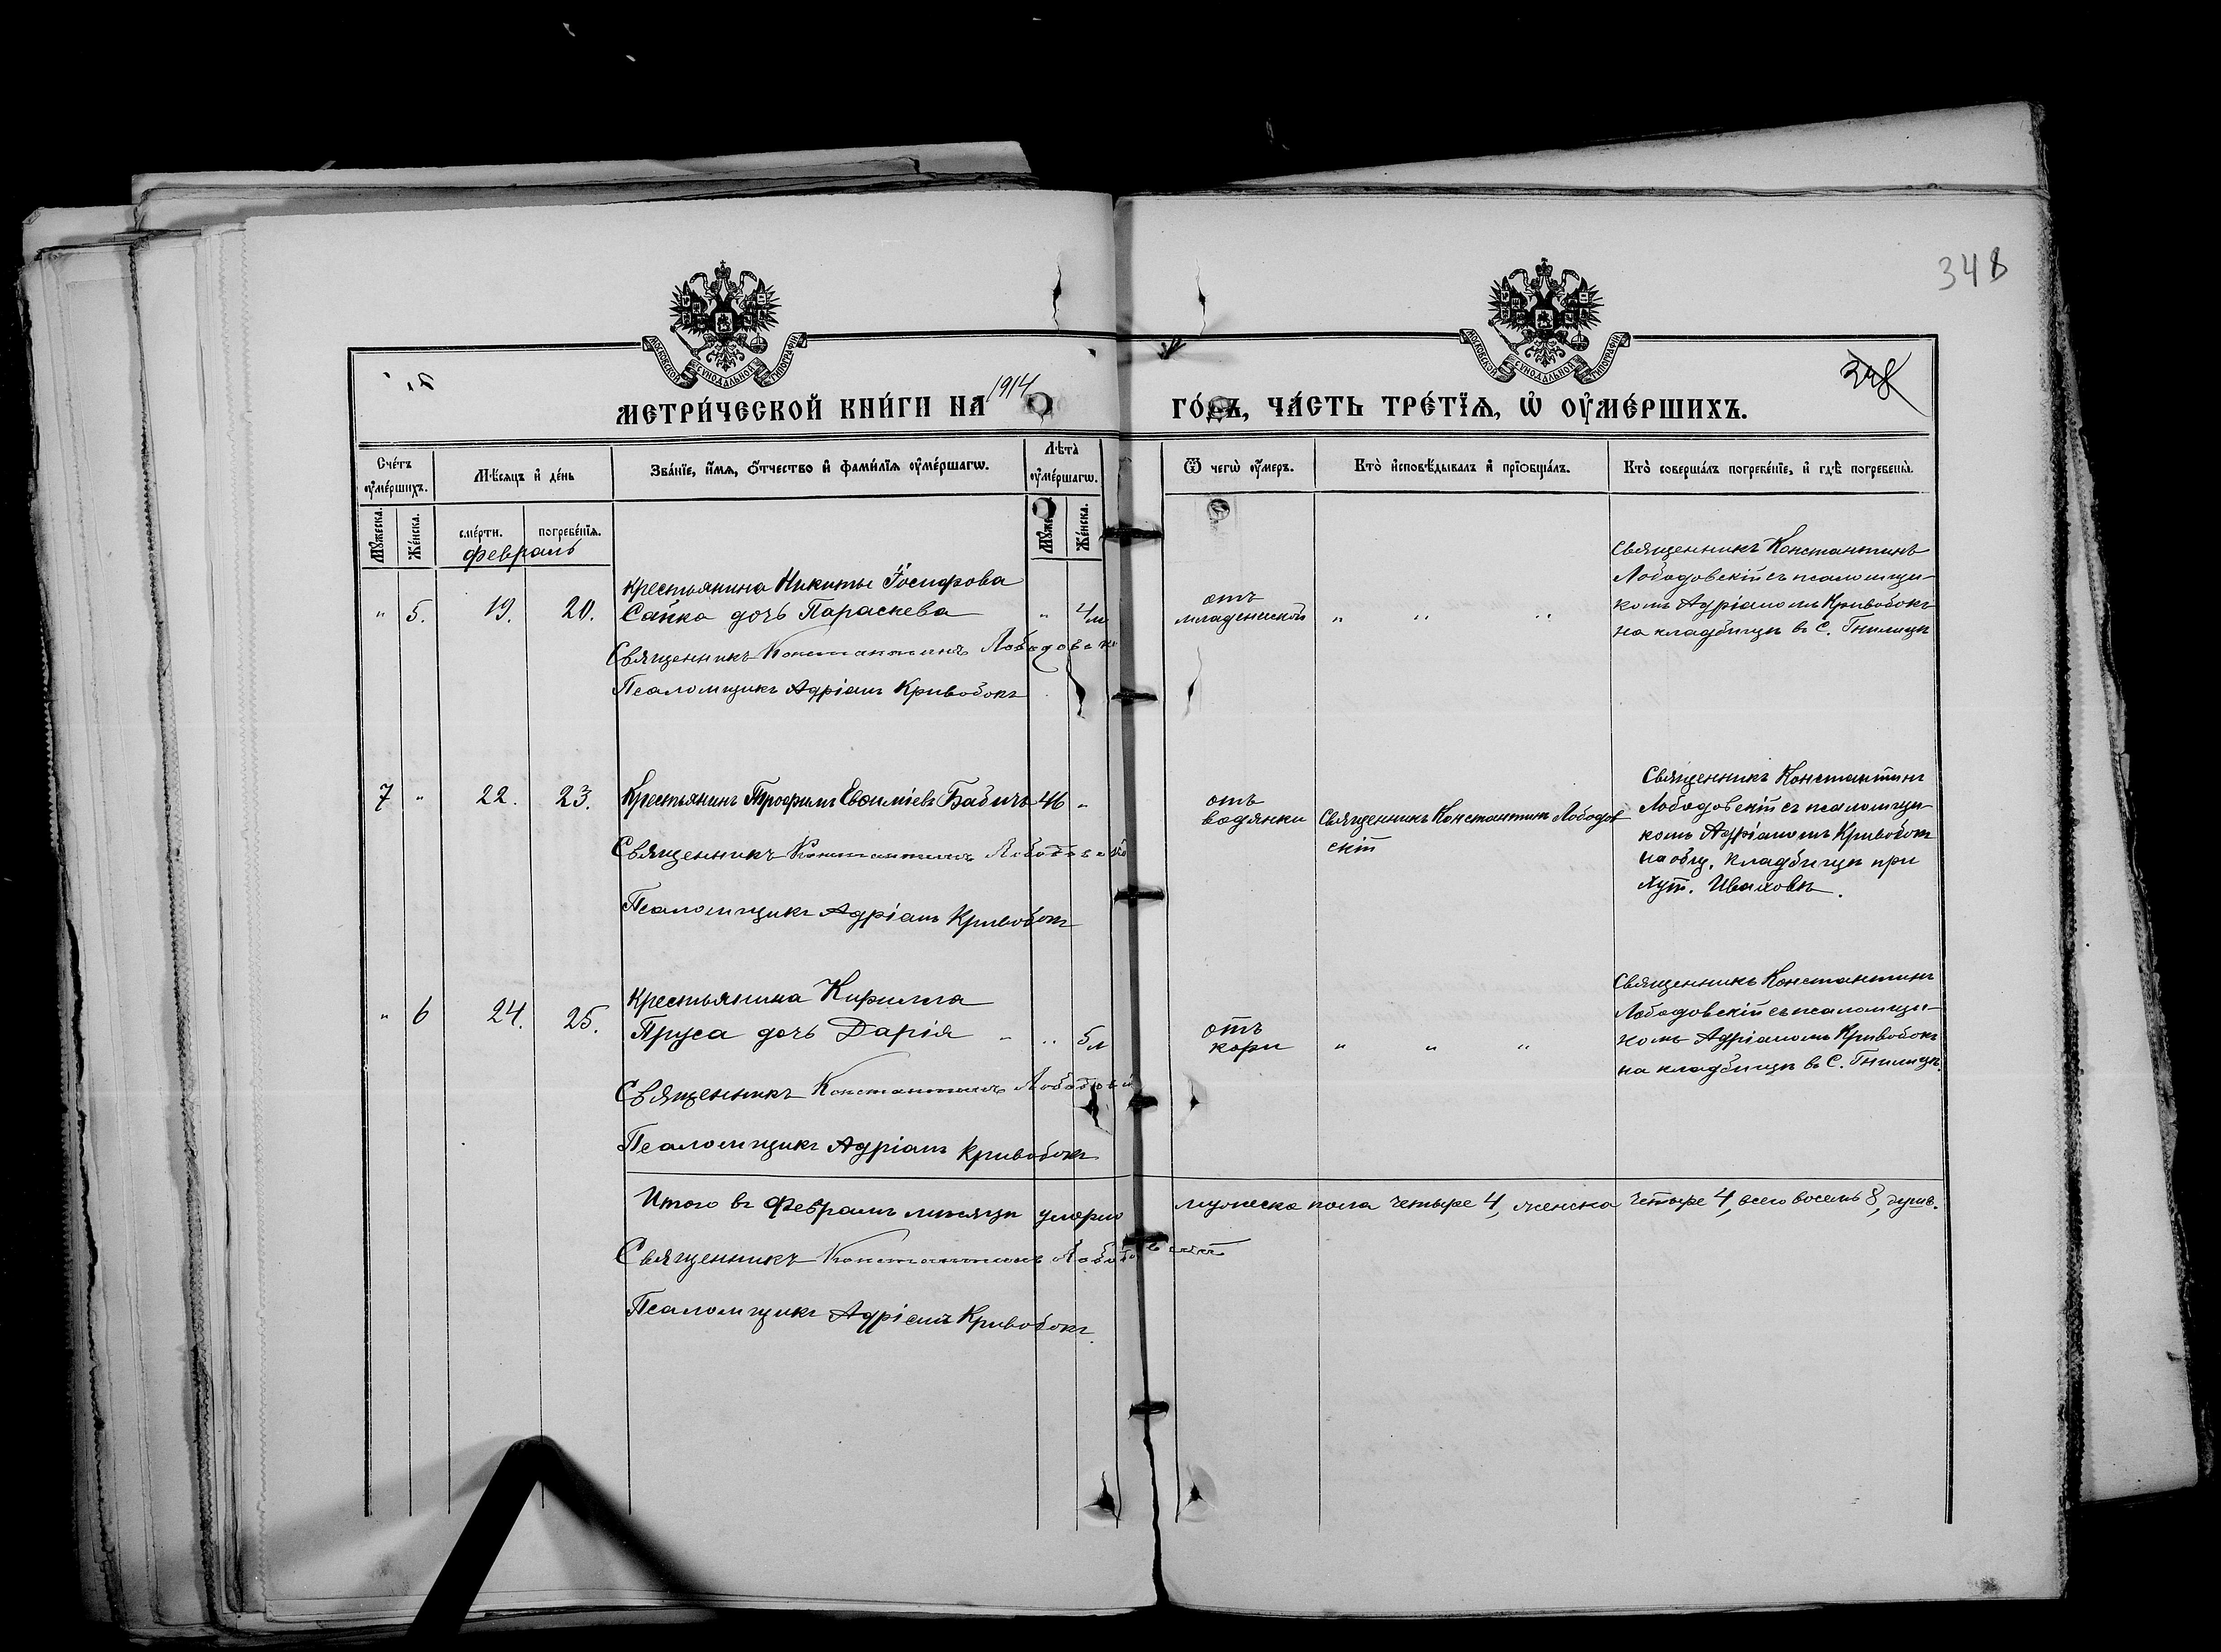 348
348
МОСКОВСКОЙ СУНОДАЛЬНОЙ ТИПОГРАФІИ
МОСКОВСКОЙ СУНОДАЛЬНОЙ ТИПОГРАФІИ
МЕТРИ́ЧЕСКОЙ КНИ́ГИ НА 1914 ГО́ДЪ, ЧА́СТЬ ТРЕ́ТЇѦ, Ѡ ОУ҆МЕ́РШИХЪ.
Сче́тъ оумéршихъ.
Мѣ́сяцъ и де́нь
Зва́нїе, и́мѧ, ѻ́тчество и фами́лїѧ оуме́ршагѡ.
Лѣта̀ оуме́ршагѡ.
Ѿ чегѡ̀ оу́меръ.
Кто̀ исповѣ́дывалъ и прїѡбща́лъ.
Кто̀ соверша́лъ погребе́нїе, и гдѣ̀ погребены̀.
Мꙋ́жеска.
Же́нска.
сме́рти.
погребе́нїѧ.
Мꙋ́же
Же́нска.
Февраль
" 5. 19. 20.
Крестьянина Никиты Іосифова
Сайка дочь Параскева " 4 м
Священникъ Константинъ Лободовск
Псаломщикъ Адріанъ Кривобокъ
отъ
младенческой " " "
Священникъ Константинъ
Лободовскій съ псаломщи-
комъ Адріаномъ Кривобокъ
на кладбищѣ въ С. Гнилицѣ
7 " 22. 23. Крестьянинъ Трофимъ Евѳиміевъ Бабичъ 46 "
Священникъ Константинъ Лободовскій
Псаломщикъ Адріанъ Кривобокъ
отъ
водянки
Священникъ Константинъ Лободов
скій
Священникъ Константинъ
Лободовскій съ псаломщи-
комъ Адріаномъ Кривобокъ
на общ. кладбищѣ при
хут. Иваховѣ.
" 6 24. 25.
Крестьянина Кирилла
Пруса дочь Дарія " " 5 м
Священникъ Константинъ Лободовскій
Псаломщикъ Адріанъ Кривобокъ
отъ
кори " " "
Священникъ Константинъ
Лободовскій съ псаломщи-
комъ Адріаномъ Кривобокъ
на кладбищѣ въ С. Гнилицѣ.
Итого въ Февралѣ мѣсяцѣ умерло мужеска пола четыре 4, женска четыре 4, всего восемь 8, душъ.
Священникъ Константинъ Лободовскій
Псаломщикъ Адріанъ Кривобокъ.